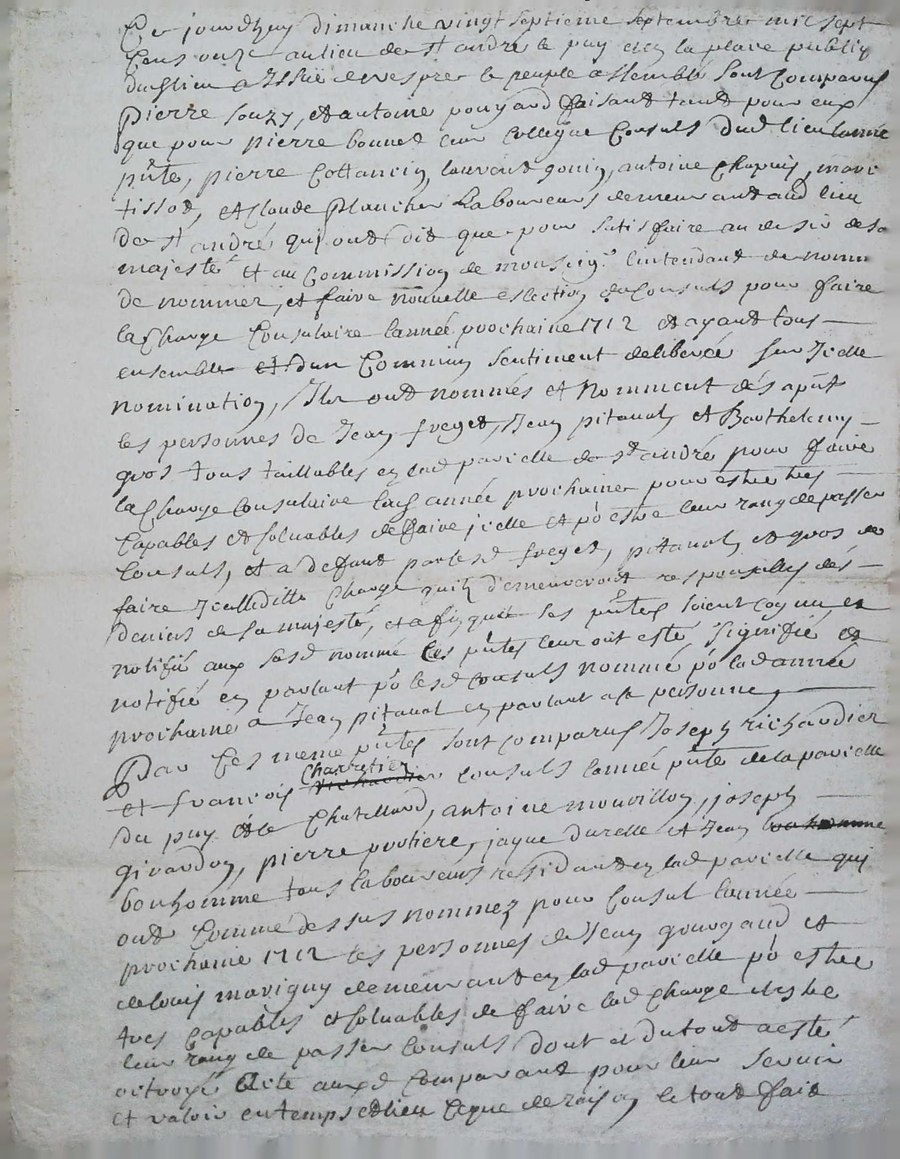 Ce jourdhuy dimanche vingt septieme septembre mil sept
cens onze au lieu de st andré le puy et en la place public
dudt lieu a Issüe de vespres le peuple assemblé sont comparus
Pierre souzy, et antoine pouyard faisant tant pour eux
que pour pierre bonnet leur collegue Consuls dud lieu lannée
pñte, pierre Cottancin, laurent gonin, antoine Chapuis, marc
tissot, et Claude plancher Laboureurs demeurant aud lieu
de st andré qui ont dit que pour satisfaire au desir de sa
majesté et au Commission de monseigr lintendant de nomm
de nommer, et faire nouvelle eslection de Consuls pour faire
la Charge Consulaire lannée prochaine 1712 et ayant tous
ensemble et dun Commun sentiment deliberée sur Icelle
nomination, Ils ont nommés et Nomment dés apñt
les personnes de Jean freget, Jean pitaval, et Barthelemy
gros tous taillables en lad parcelle de st andré pour faire
la Charge Consulaire lad année prochaine pour estre tres
Capables et soluables de faire jcelle et pr estre leur rang de passer
Consuls, et a defaut par lesd freget, pitaval, et gros de
faire Jcelleditte Charge quils demeureront responsables dés
deniers de sa majesté, et afin que les pñtes soient connu, et
notifié aux susd nommé les pñtes leur ont esté signifié et
notifié en parlant pr lesd consuls nommé pr lad année
prochaine a Jean pitaval en parlant a sa personne,
Par Ces meme pñtes sont comparus Joseph richaudier
et françois Charretier consuls lannée pñte de la parcelle
du puy et le Chatellard, antoine mourillon, joseph
girardon, pierre protiere, jaque durelle et Jean
bonhomme tous laboureurs residant en lad parcelle qui
ont Comme dessus nommez pour Consul lannée
prochaine 1712 les personnes de Jean gouyard et
de louis marigny demeurant en lad parcelle pr estre
tres Capables et soluables de faire lad Charge et estre
leur rang de passer consuls dont et du tout a esté
octroyé acte auxd Comparant pour leur servir
et valoir en temps et lieu Ce que de raison le tout fait